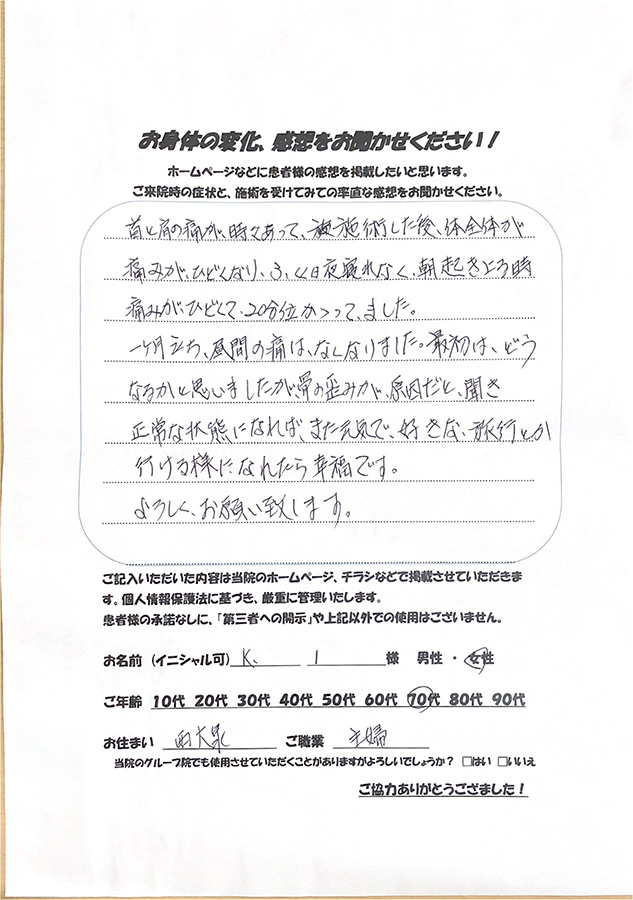 お身体の変化、感想をお聞かせください！
ホームページなどに患者様の感想を掲載したいと思います。
ご来院時の症状と、施術を受けてみての率直な感想をお聞かせください。
首と肩の痛が、時々あって、施術した後、体全体が
痛みが、ひどくなり、ふくは夜寝れなく、朝起きとる時
痛みがひどくて、20分位かゝって、ました。
一ヶ月立ち、昼間の痛は、なくなりました。最初は、どう
なるかと思いましたが、骨の歪みが、原因だと、聞き
正常な状態になれば、また元気で、好きな、旅行とか
行ける様になれたら幸福です。
よろしく、お願い致します。
ご記入いただいた内容は当院のホームページ、チラシなどで掲載させていただきま
す。個人情報保護法に基づき、厳重に管理いたします。
患者様の承諾なしに、「第三者への開示」や上記以外での使用はございません。
お名前（イニシャル可） K. I 様 男性 ・ 女性
ご年齢 10代 20代 30代 40代 50代 60代 70代 80代 90代
お住まい 西大泉 ご職業 主婦
当院のグループ院でも使用させていただくことがありますがよろしいでしょうか？ □はい □いいえ
ご協力ありがとうござました！